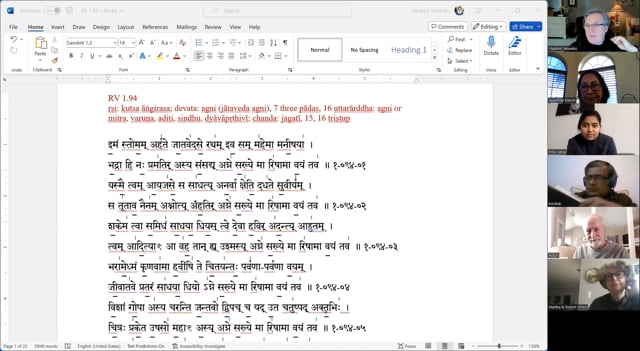 AutoSave
RV 1.94 • Saved
File Home Insert Draw Design Layout References Mailings Review View Help
Comments Editing Share
Sanskrit 1.2 14
Paste
Normal No Spacing Heading 1
Find
Replace
Select
Dictate Editor
Clipboard Font Paragraph Styles Editing Voice Editor
RV 1.94
ṛṣi: kutsa āṅgirasa; devata: agni (jātaveda agni), 7 three pādas, 16 uttarārddha: agni or
mitra, varuṇa, aditi, sindhu, dyāvāpṛthivī; chanda: jagatī, 15, 16 triṣṭup
इमं स्तोमम् अर्हते जातवेदसे रथम् इव सम् महेमा मनीषया ।
भद्रा हि नः प्रमतिर् अस्य संसद्य् अग्ने सख्ये मा रिषामा वयं तव ॥ १-०९४-०१
यस्मै त्वम् आयजसे स साधत्य् अनर्वा क्षेति दधते सुवीर्यम् ।
स तूताव नैनम् अश्नोत्य् अंहतिर् अग्ने सख्ये मा रिषामा वयं तव ॥ १-०९४-०२
शकेम त्वा समिधं साधया धियस् त्वे देवा हविर् अदन्त्य् आहुतम् ।
त्वम् आदित्याँ आ वह तान् ह्य् उश्मस्य् अग्ने सख्ये मा रिषामा वयं तव ॥ १-०९४-०३
भरामेध्मं कृणवामा हवींषि ते चितयन्तः पर्वणा-पर्वणा वयम् ।
जीवातवे प्रतरं साधया धियो ऽग्ने सख्ये मा रिषामा वयं तव ॥ १-०९४-०४
विशां गोपा अस्य चरन्ति जन्तवो द्विपच् च यद् उत चतुष्पद् अक्तुभिः ।
चित्रः प्रकेत उषसो महाँ अस्य् अग्ने सख्ये मा रिषामा वयं तव ॥ १-०९४-०५
Page 1 of 22 5948 words English (United States) Text Predictions: On Accessibility: Investigate Focus 130%